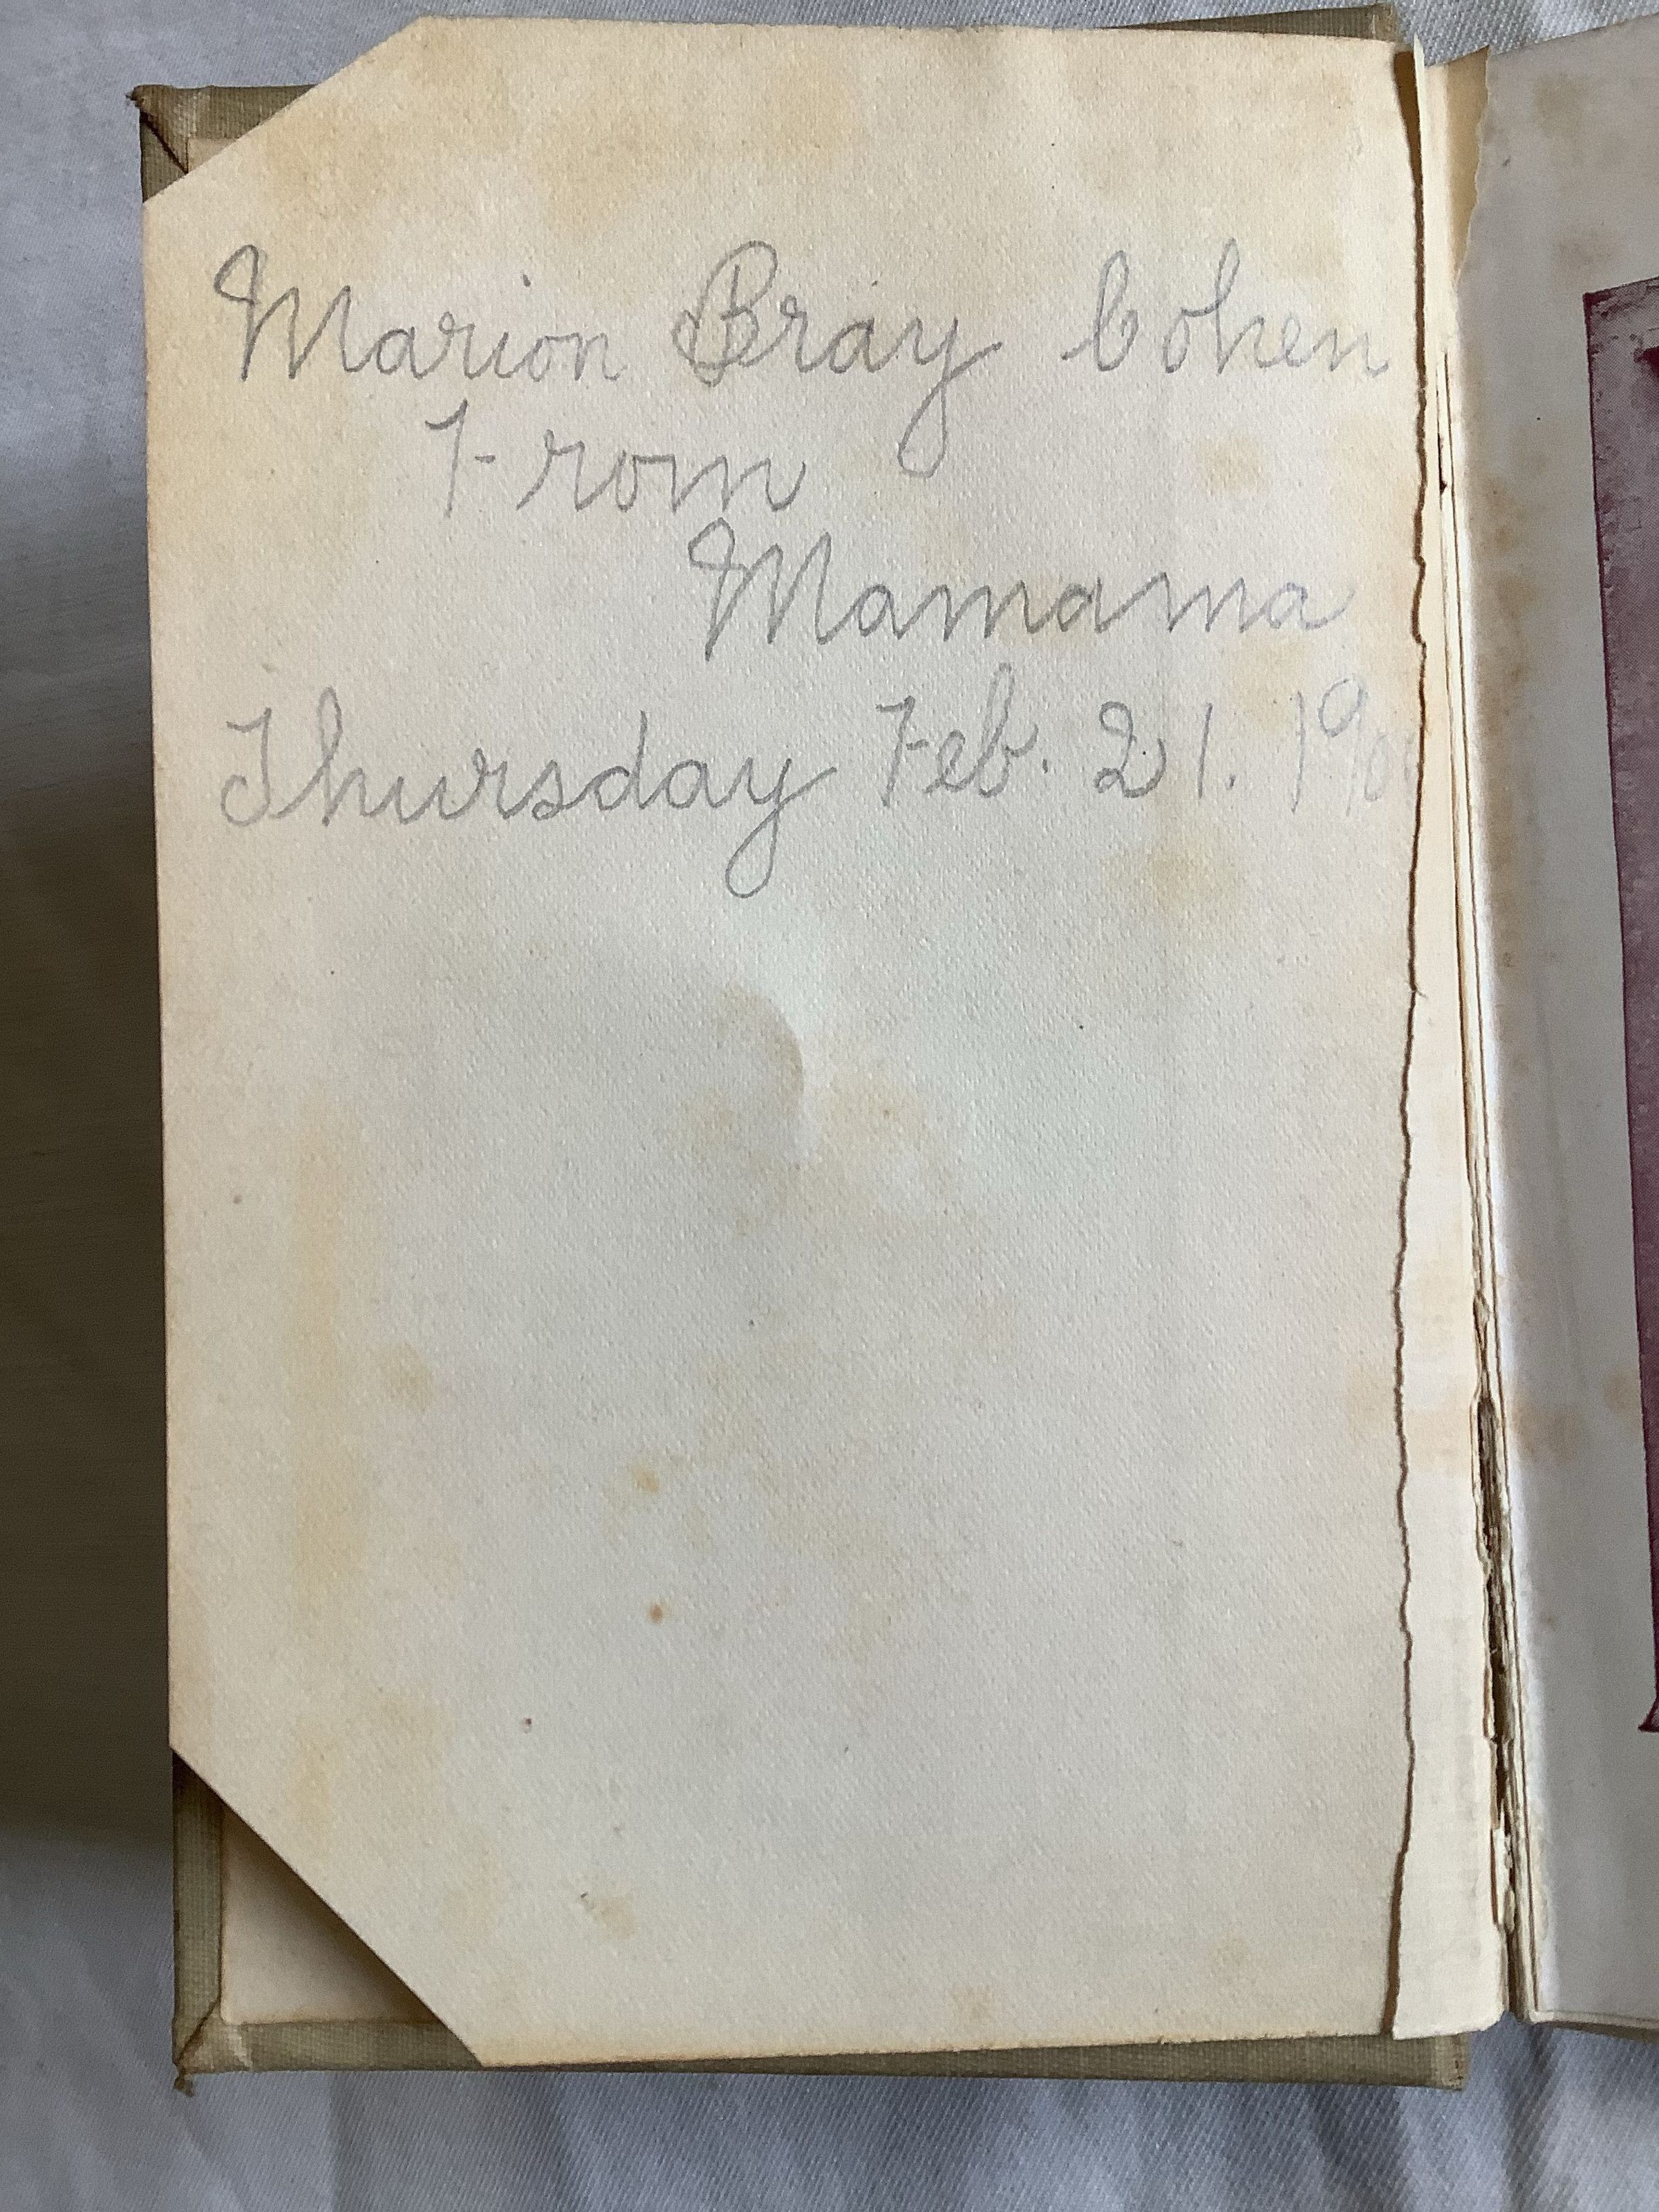 Marion Bray Cohen
From
Mamama
Thursday Feb. 21.